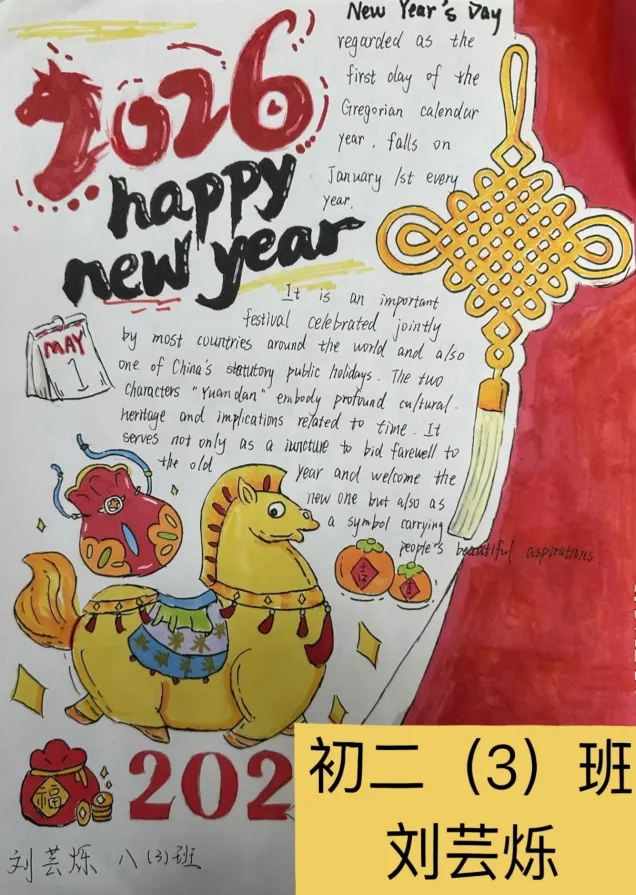 2026
happy
new year
New Year's Day
regarded as the
first day of the
Gregorian calendar
year. falls on
January 1st every
year.
It is an important
festival celebrated jointly
by most countries around the world and also
one of China's statutory public holidays. The two
characters "Yuandan" embody profound cultural.
heritage and implications related to time. It
serves not only as a juncture to bid farewell to
the old year and welcome the
new one but also as
a symbol carrying
people's beautiful aspirations.
MAY
1
福
202
刘芸烁 八(3)班
初二（3）班
刘芸烁